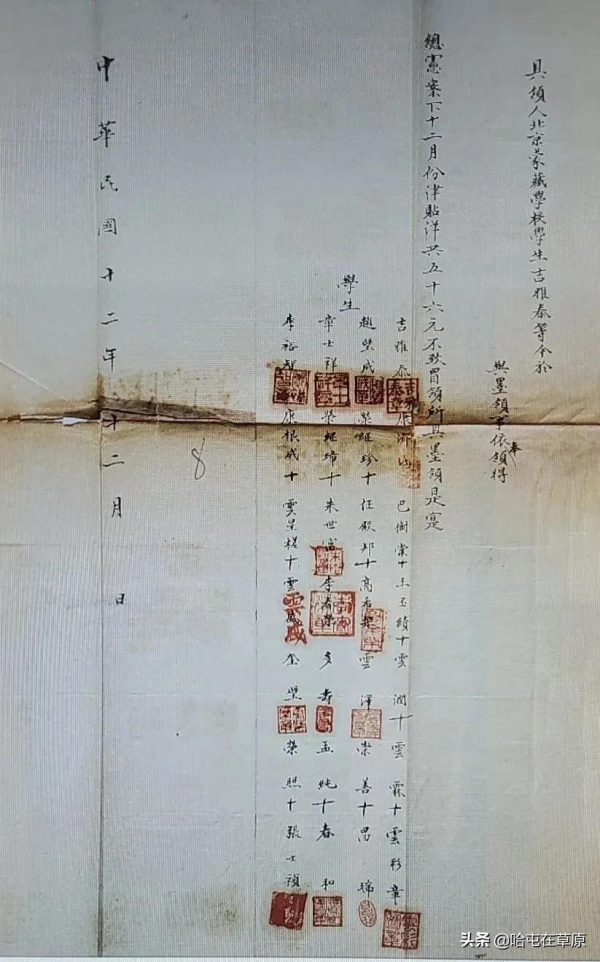 具領人北京蒙藏學校學生吉雅泰等今於
與墨領事依奉領得
總憲案下十二月份津貼洋共五十六元不致冒領所具墨領是寔
學生
吉雅泰 康濟 巴樹棠十 王玉績十 雲潤十 雲霖十 雲彩章
趙璧成 榮繼珍十 任殿邦十 高布 雲澤 崇善十 昌瑞
章士祥 榮繼綿十 朱世富 李春榮 多壽 孟純十 春和
李裕智 康根成十 雲呈祥十 雲 奎璧 榮照十 張士禎
8
中華民國十二年十二月 日
头条 @哈屯在草原